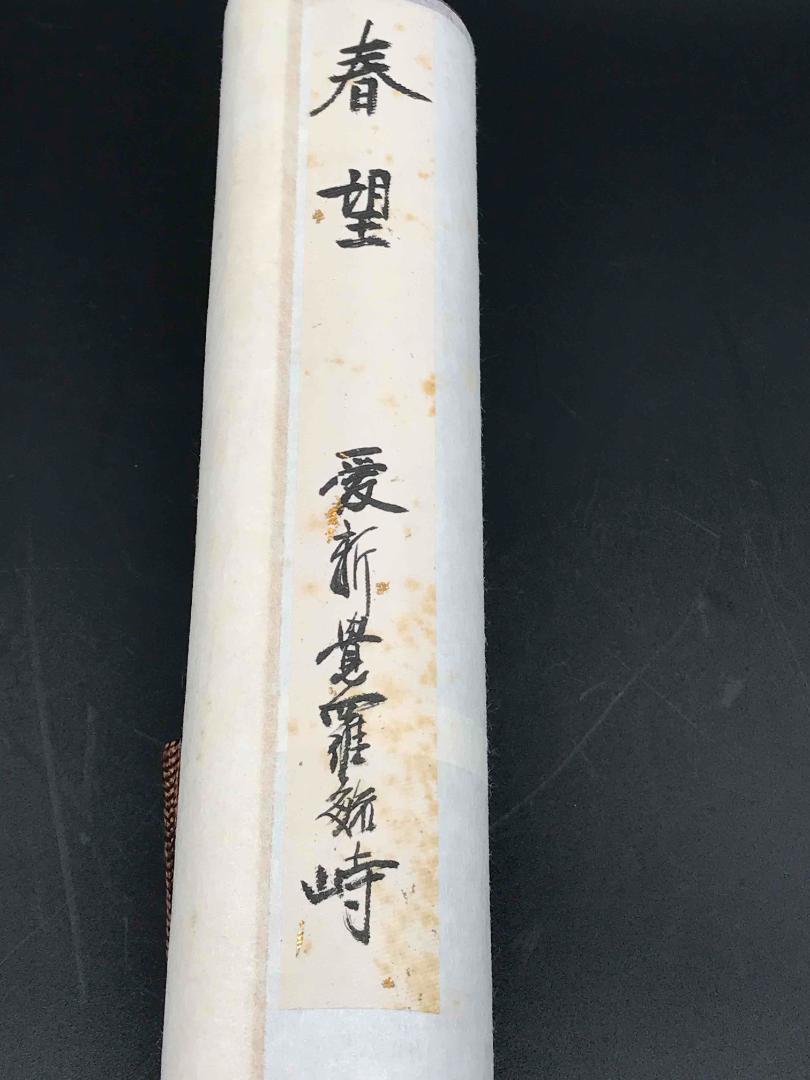 春望 愛新覺羅毓峙